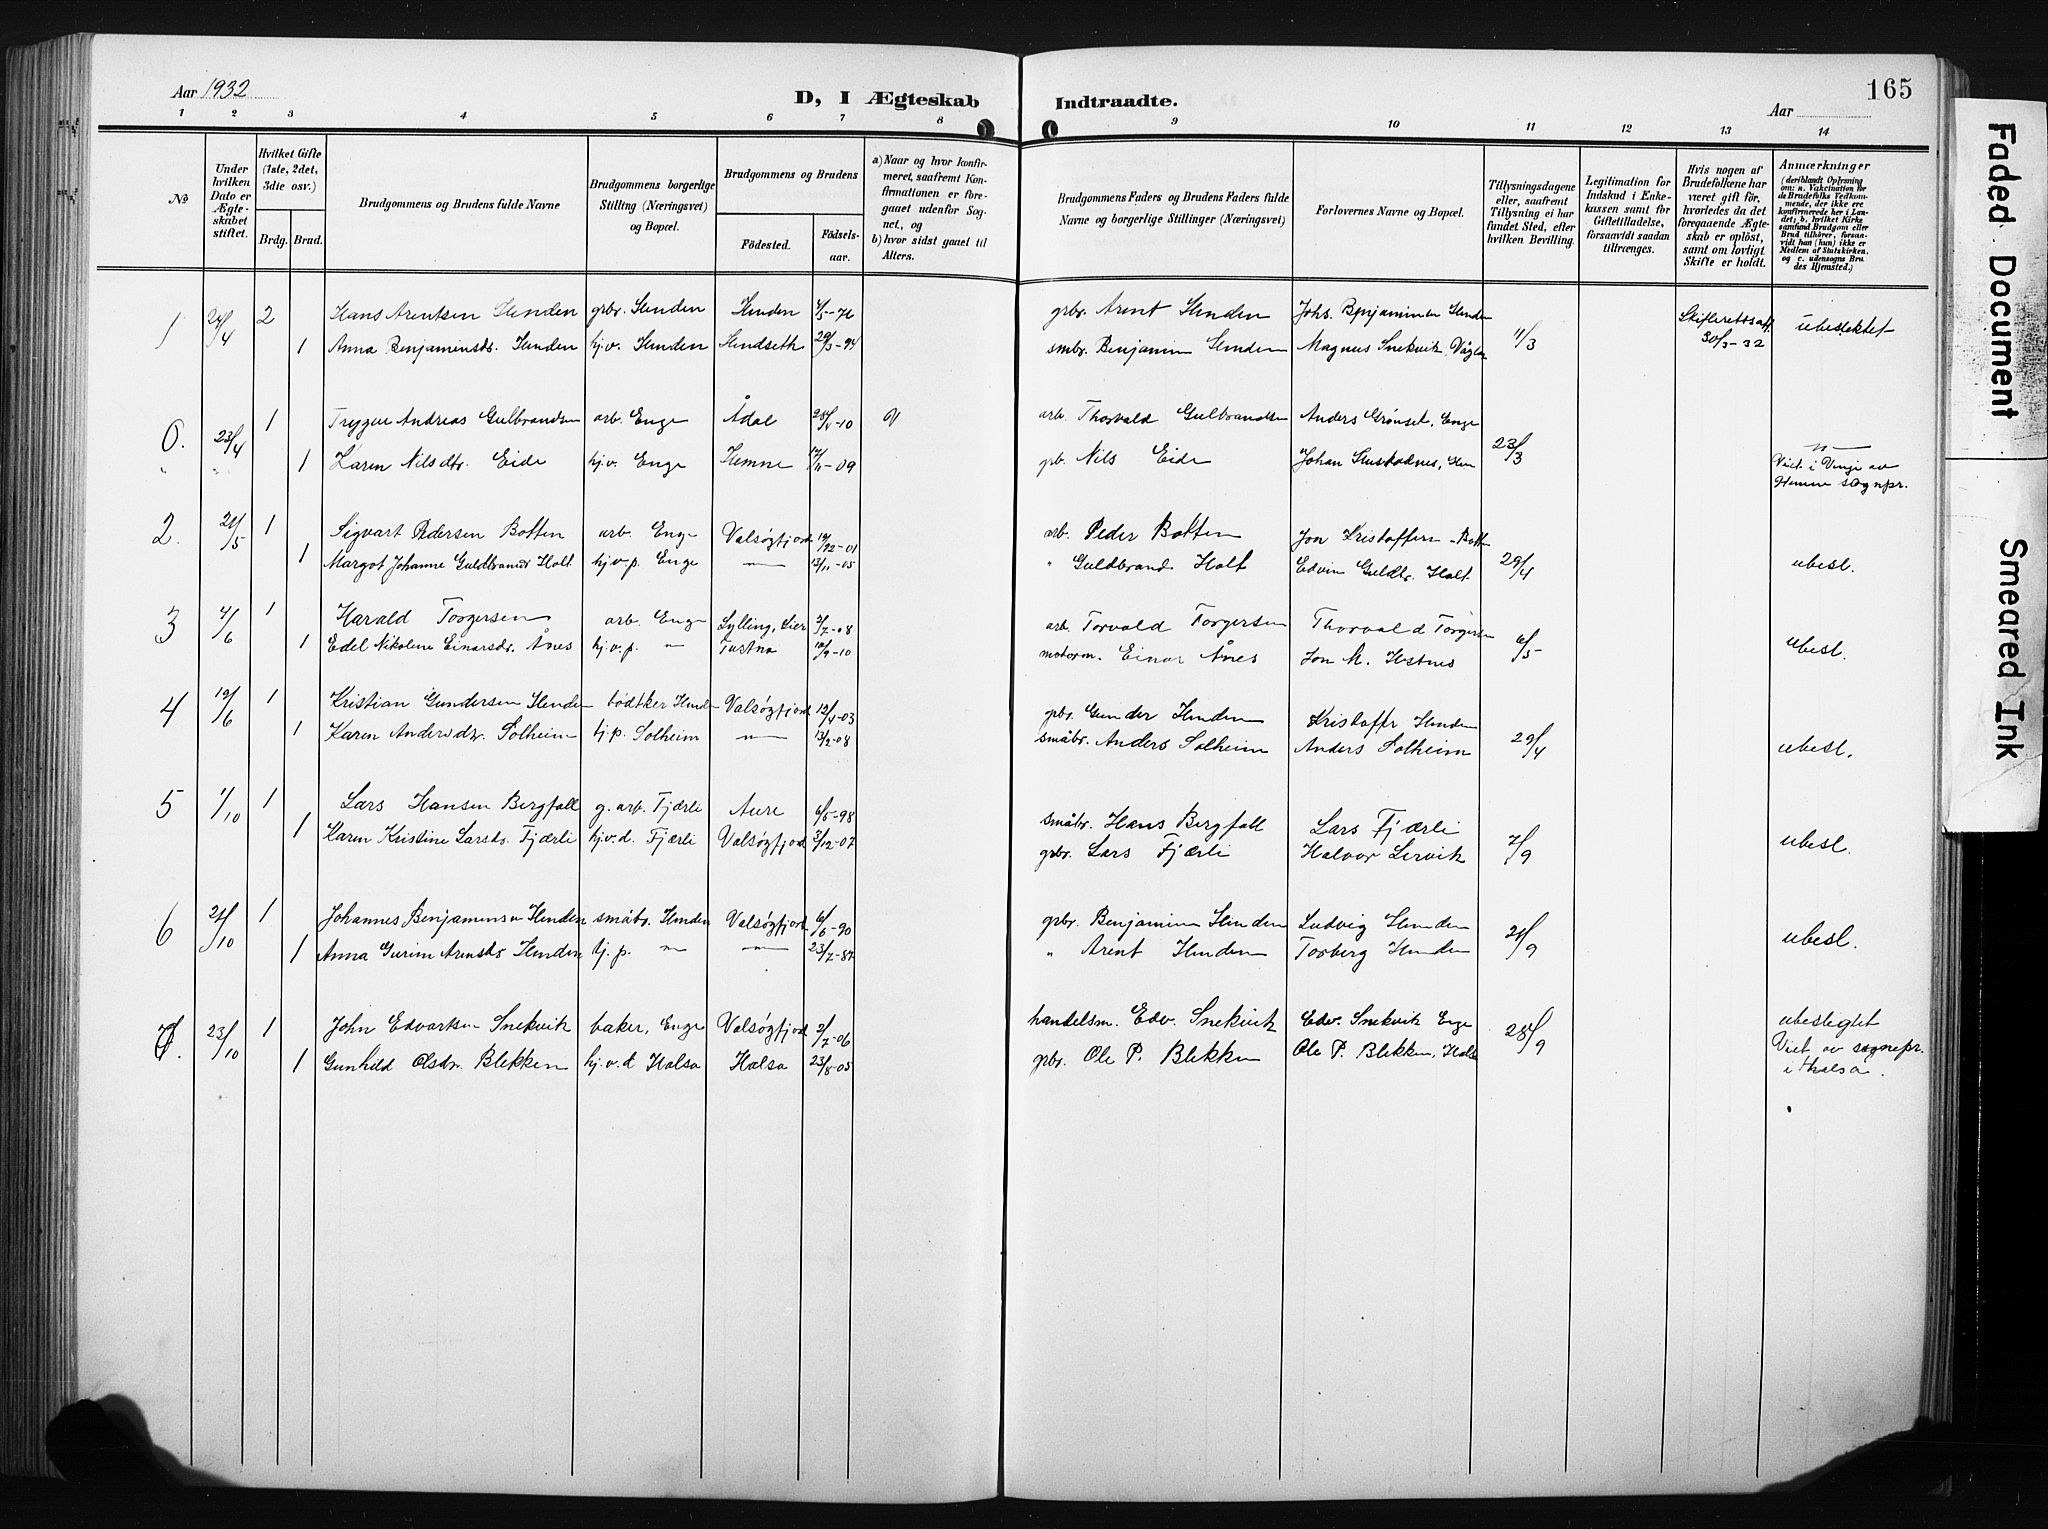 Aar 1932
D, I Ægteskab
Indtraadte.
Aar
165
1 2 3 4 5 6 7 8 9 10 11 12 13 14
No
Under hvilken Dato er Ægteskabet stiftet.
Hvilket Gifte (1ste, 2det, 3die osv.)
Brdg. Brud.
Brudgommens og Brudens fulde Navne
Brudgommens borgerlige Stilling (Næringsvei) og Bopæl.
Brudgommens og Brudens
Födested. Födselsaar.
a) Naar og hvor konfirmeret, saafremt Konfirmationen er foregaaet udenfor Sognet, og
b) hvor sidst gaaet til Alters.
Brudgommens Faders og Brudens Faders fulde Navne og borgerlige Stillinger (Næringsvei)
Forlovernes Navne og Bopæl.
Tillysningsdagene eller, saafremt Tillysning ei har fundet Sted, efter hvilken Bevilling.
Legitimation for Indskud i Enkekassen samt for Giftetilladelse, forsaavidt saadan tiltrænges.
Hvis nogen af Brudefolkene har været gift för, hvorledes da det foregaaende Ægteskab er oplöst, samt om lovligt Skifte er holdt.
Anmærkninger
(deriblandt Opfrsning om: a. Vakcination for de Brudefolks Vedkommende, der ikke ere konfirmerede her i Landet; b. hvilket Kirkesamfund Brudgom eller Brud tilhörer, forsaavidt han (hun) ikke er Medlem af Statskirken. og c. udensogns Brudes Hjemsted.)
1 24/4 2 Hans Arentsen Henden grbr. Henden Henden 4/5-76 grbr. Arent Henden Johs. Benjaminsen Henden 11/3 Skifterettsatt. 30/3-32 ubeslektet
1 Anna Benjaminsdr. Henden hj.v. Henden Hendseth 29/3-94 smbr. Benjamin Henden Magnus Snekvik, Våglan
0. 23/4 1 Trygve Andreas Gulbrandsen arb. Enge Ådal 28/4-10 arb. Thorvald Gulbrandsen Anders Grønset, Enge 23/3
1 Karen Nilsdtr. Eide hj.v. Enge Hemne 17/11-09 gbr. Nils Eide Johan
Viet i Vinje av
Hemne sognpr.
2. 21/5 1 Sigvart Pedersen Botten arb. Enge Valsøyfjord 19/12-01 arb. Peder Botten Jon Kristoffersn Botten 29/4 ubesl.
1 Margot Johanne Guldbransd Holt hj.v.p. Enge — 13/11-05 " Guldbrand Holt Edvin Guldbr. Holt.
3 4/6 1 Harald Torgersen arb. Enge Sylling, Lier 2/7-08 arb. Torvald Torgersen Thorvald Torgersen 6/5 ubesl.
1 Edel Nikoline Einarsdr. Ånes hj.v.p. " Tustna 10/9-10 motorm. Einar Ånes Jon M. Hestnes
4 19/6 1 Kristian Gundersen Henden bødtker Henden Valsøyfjord 12/4-03 gbr. Gunder Henden Kristoffr Henden 29/4 ubesl.
1 Karen Andersdr. Solheim hj.p. Solheim — 13/2-08 småbr. Anders Solheim Anders Solheim
5 1/10 1 Lars Hansen Bergfall g. arb. Fjærli Aure 6/5-98 småbr. Hans Bergfall Lars Fjærli 7/9 ubesl.
1 Karen Kristine Larsdr. Fjærli hj.v.d. Fjærli Valsøyfjord 3/12-07 gbr. Lars Fjærli Halvor Lervik
6 21/10 1 Johannes Benjaminsen Henden småbr. Henden Valsøyfjord 6/6-90 gbr. Benjamin Henden Ludvig Henden 21/9 ubesl.
1 Anna Gurine Arentsdr Henden hj. p. " — 23/7-87 " Arent Henden Torberg Henden
23/10 1 John Edvartsen Snekvik baker, Enge Valsøyfjord 2/7-06 handelsm. Edv. Snekvik Edv. Snekvik Enge 28/9 ubeslegtet
1 Gunhild Olsdr. Blekken hj.v.d Halsa Halsa 23/8-05 gbr. Ole P. Blekken Ole P. Blekken, Halsa
Viet av sognepr.
i Halsa.
Faded Document
Smeared Ink